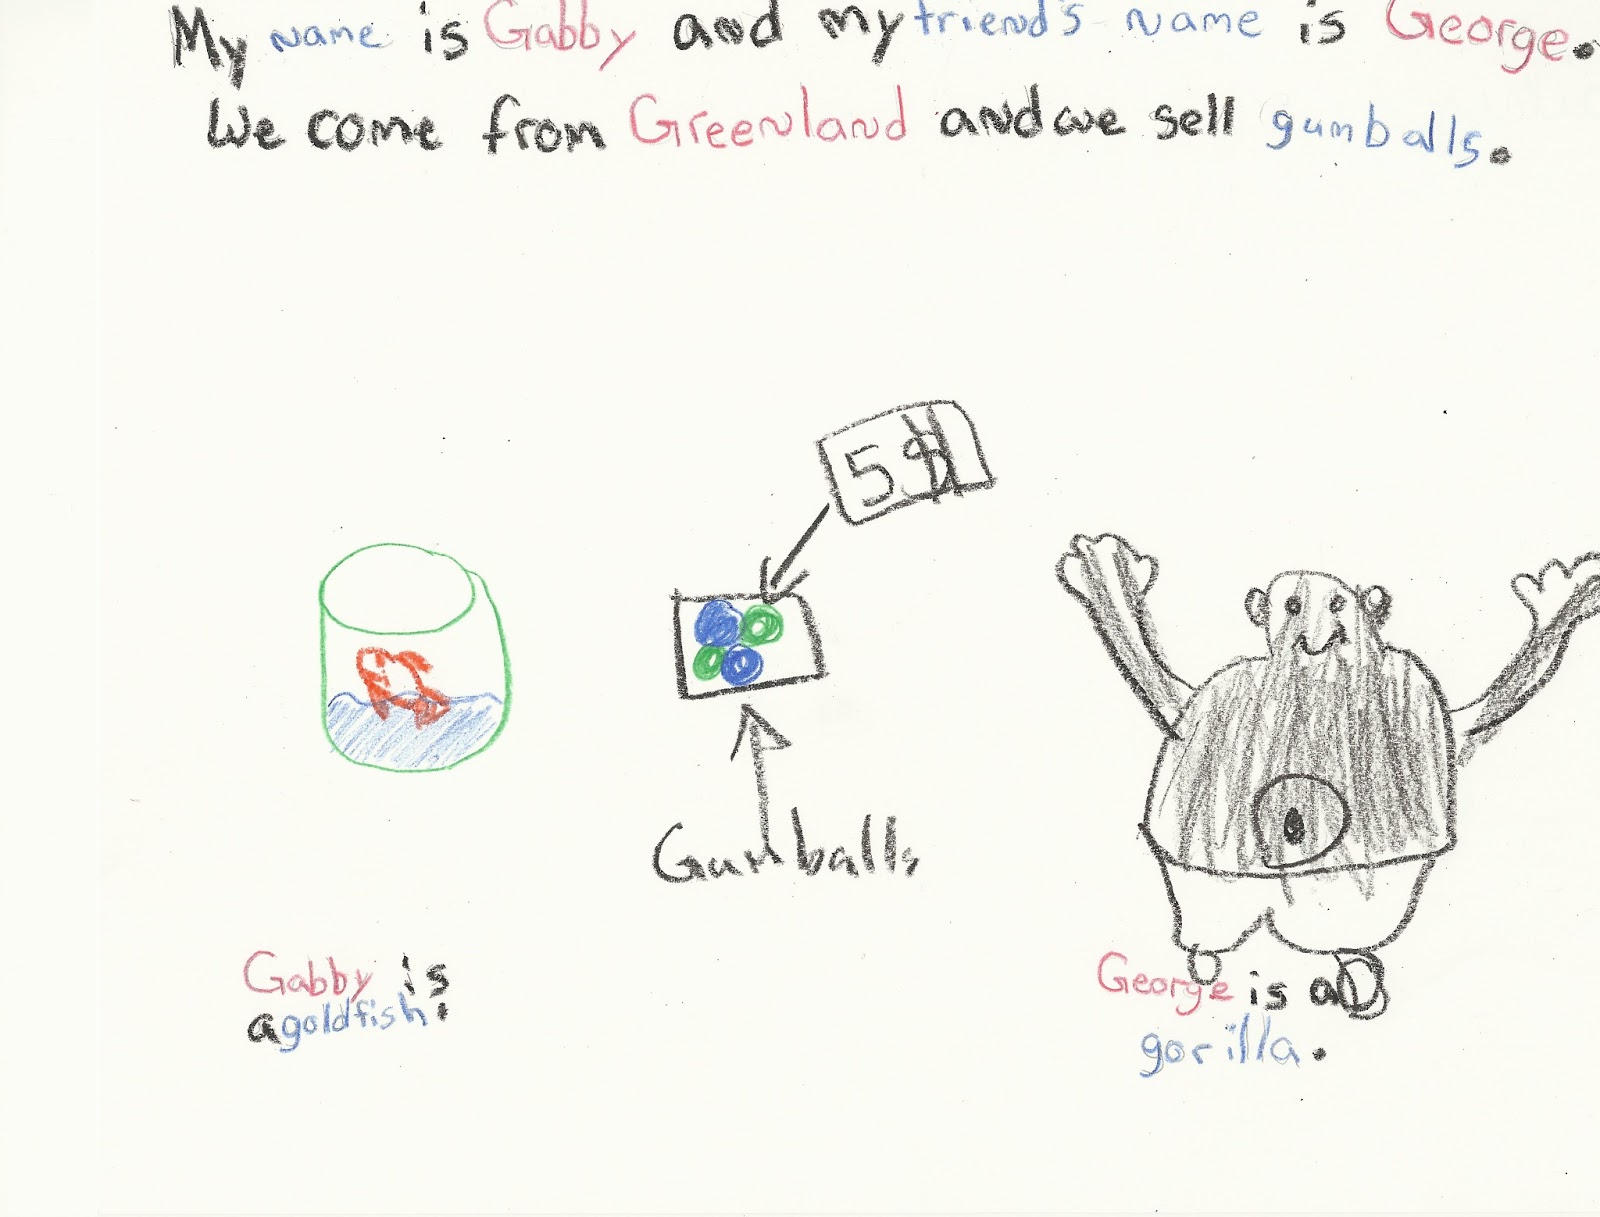 My name is Gabby and my friend's name is George.
We come from Greenland and we sell gumballs.
5$
Gumballs
Gabby is
a goldfish.
George is a
gorilla.